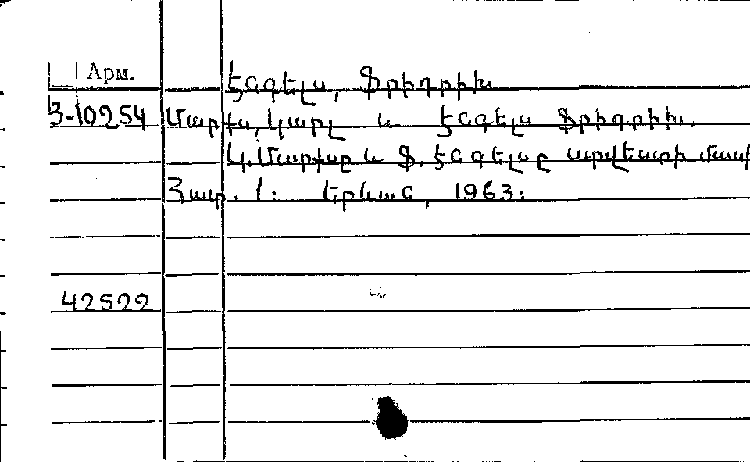 Арм. Էնգելս, Ֆրիդրիխ
Յ-10254 Մարքս, Կարլ և Էնգելս Ֆրիդրիխ.
Կ. Մարքսը և Ֆ. Էնգելսը արվեստի մասի
Հատ. 1: Երևան, 1963:
42522